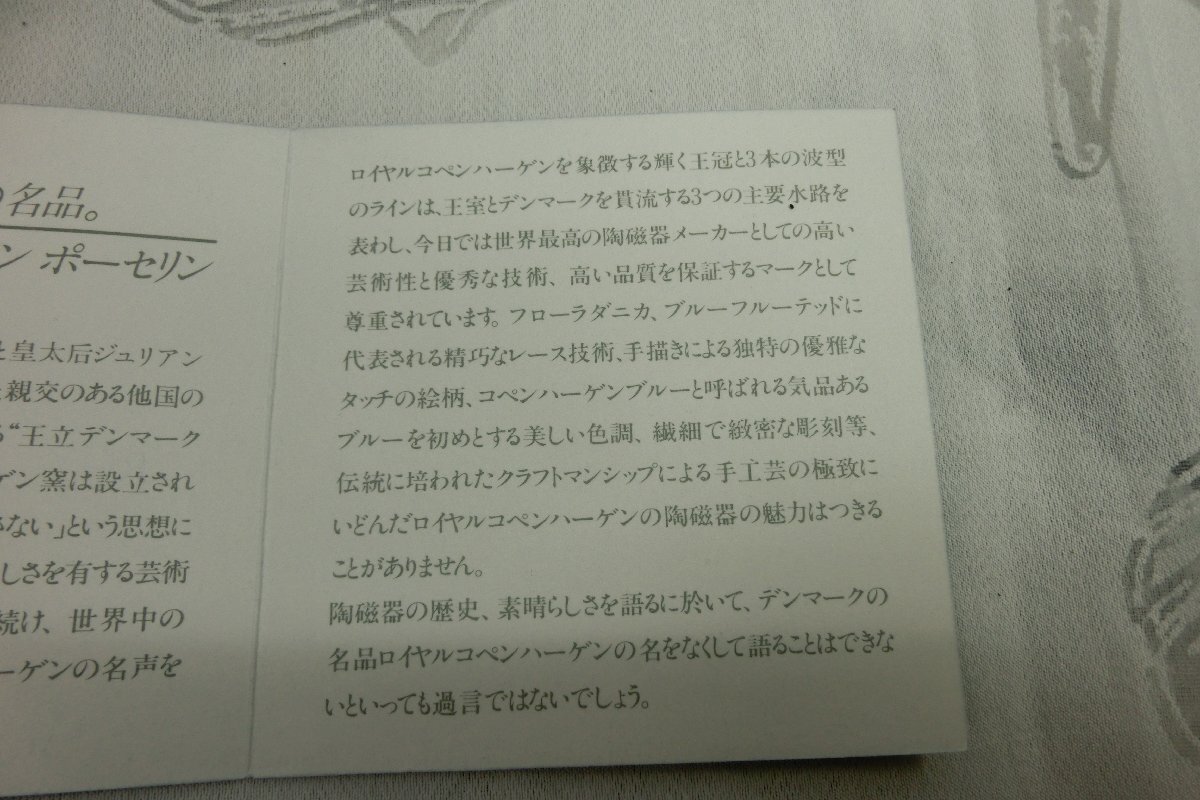 名品。
ン ポーセリン
皇太后ジュリアン
親交のある他国の
“王立デンマーク
ゲン窯は設立され
ない」という思想に
しさを有する芸術
続け、世界中の
ーゲンの名声を
ロイヤルコペンハーゲンを象徴する輝く王冠と3本の波型
のラインは、王室とデンマークを貫流する3つの主要水路を
表わし、今日では世界最高の陶磁器メーカーとしての高い
芸術性と優秀な技術、高い品質を保証するマークとして
尊重されています。フローラダニカ、ブルーフルーテッドに
代表される精巧なレース技術、手描きによる独特の優雅な
タッチの絵柄、コペンハーゲンブルーと呼ばれる気品ある
ブルーを初めとする美しい色調、繊細で緻密な彫刻等、
伝統に培われたクラフトマンシップによる手工芸の極致に
いどんだロイヤルコペンハーゲンの陶磁器の魅力はつきる
ことがありません。
陶磁器の歴史、素晴らしさを語るに於いて、デンマークの
名品ロイヤルコペンハーゲンの名をなくして語ることはできな
いといっても過言ではないでしょう。